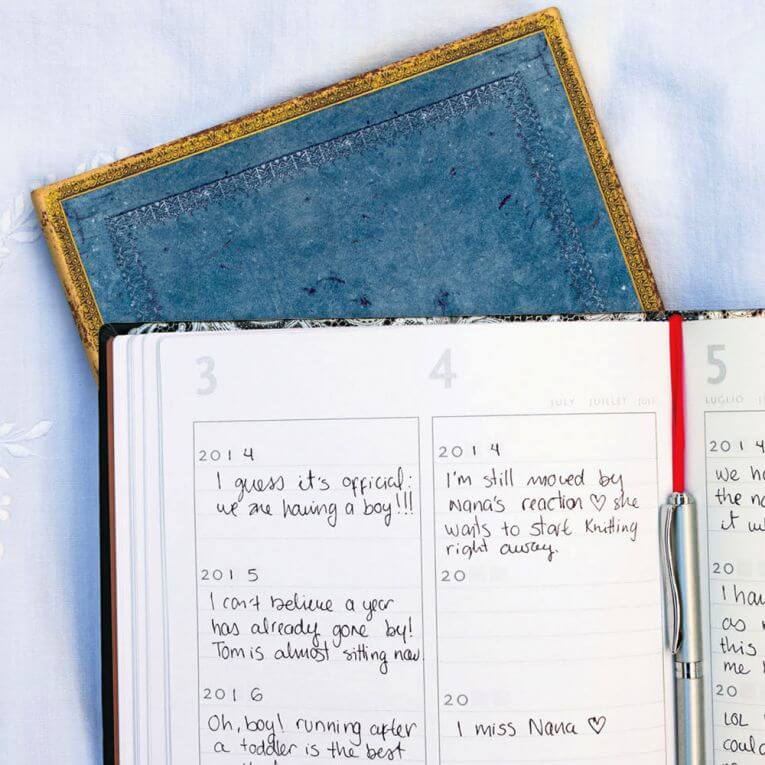 3
2014
I guess it's official:
we are having a boy!!!
2015
I can't believe a year
has already gone by!
Tom is almost sitting now.
2016
Oh, boy! running after
a toddler is the best
4
JULY JUILLET JULI
2014
I'm still moved by
Nana's reaction ♡ she
wants to start Knitting
right away.
20
20
I miss Nana ♡
5
LUGLIO
2014
we
the
it
20
I
as
this
me
20
LOL